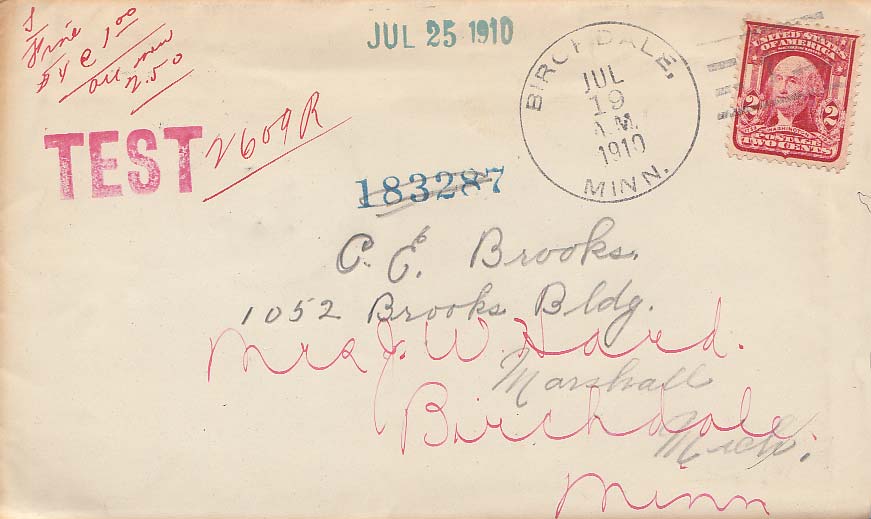 JUL 25 1910
Fine
$4 @ 1.00
all new
2.50
TEST
2609R
183287
BIRCHDALE,
JUL
19
A.M.
1910
MINN.
UNITED STATES
OF AMERICA
2 2
WASHINGTON
POSTAGE
TWO CENTS
C. E. Brooks.
1052 Brooks Bldg.
Marshall
Mich.
Mrs J. W. Ward.
Birchdale,
Minn